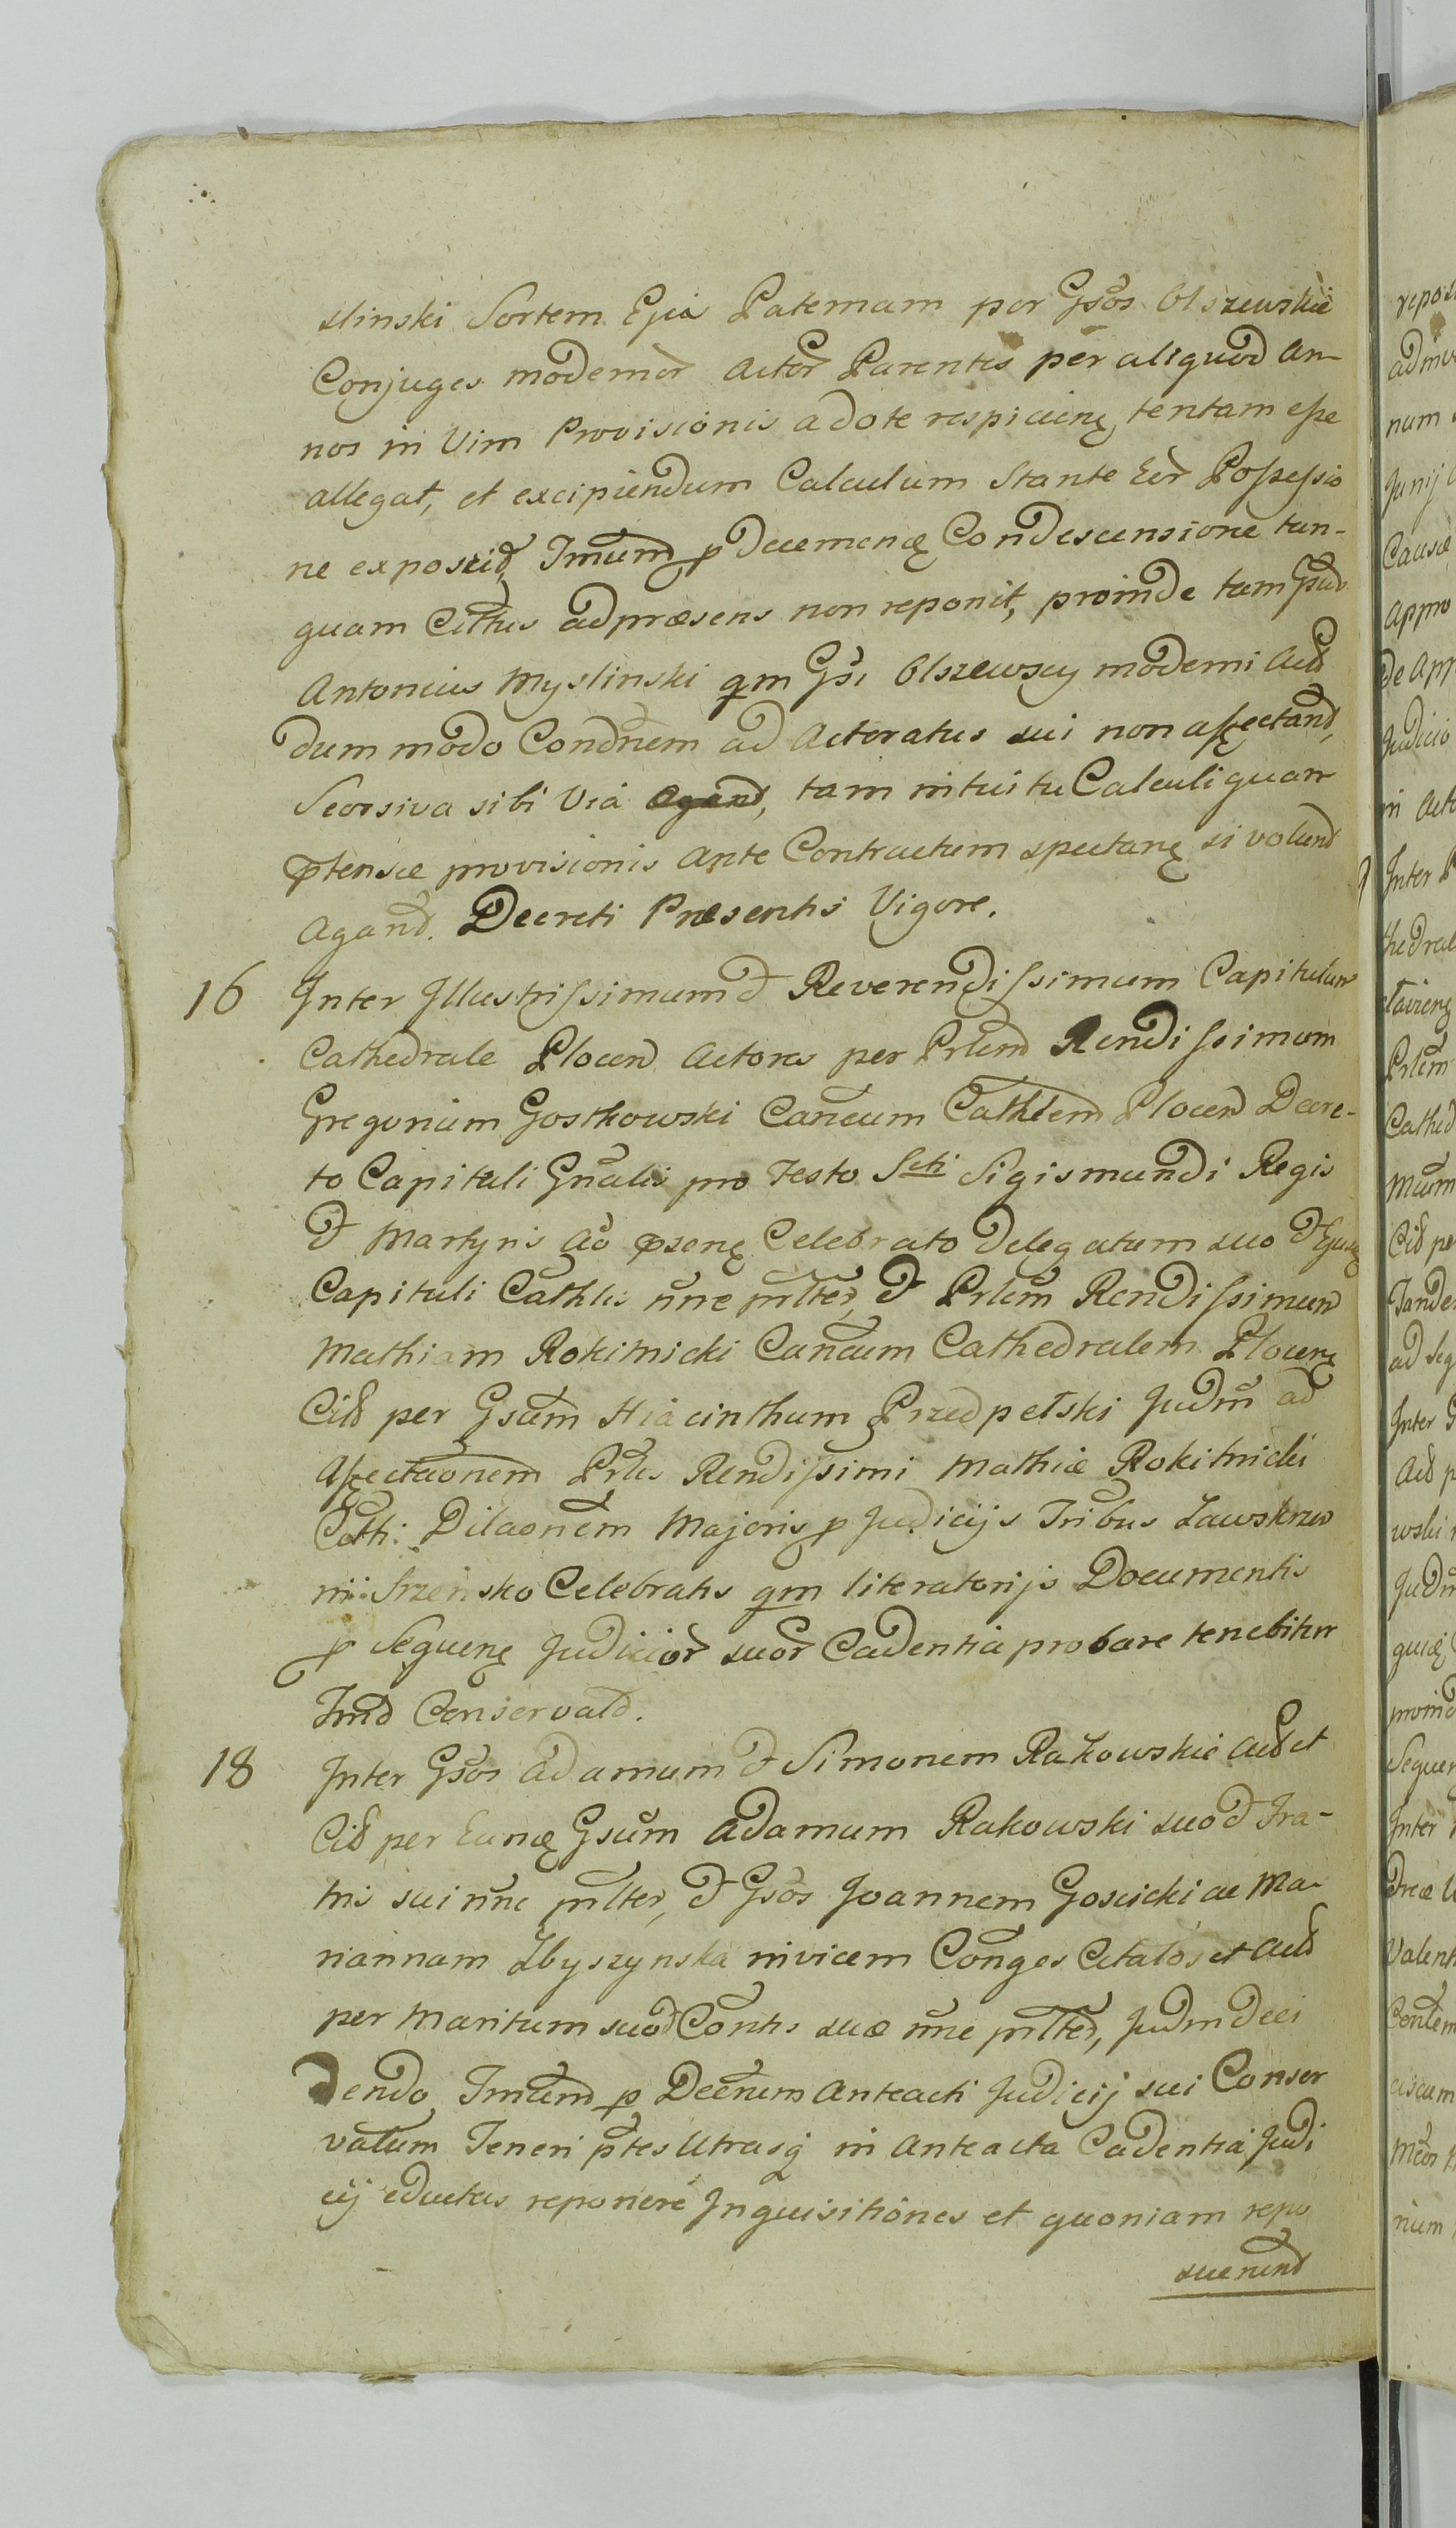 slinski Sortem Ejus Paternam per Gsos Olszewskie
Conjuges modernor Actor Parentes per aliquod An-
nos in Vim Provisionis a dote respicien tentam esse
allegat, et excipiendum Calculum Stante Eor Possessio
ne exposcid, Imund p decemend Condescensione tan-
quam Cittus ad præsens non reponit, proinde tam Gsus
Antonius Myslinski qm Gsi Olszewscy moderni Act
dum modo Condnem ad Actoratus sui non affectand,
Seorsiva sibi Via tam intuitu Calculi quam
ptensæ provisionis ante Contractum spectan si volund
Agand. Decreti Præsentis Vigore.
16 Inter Illustrissimum & Reverendissimum Capitulum
Cathedrale Plocen Actores per Prlem Rendissimum
Gregorium Gostkowski Cancum Cathlem Plocen Decre-
to Capituli Gnalis pro Festo Scti Sigismundi Regis
& Martyris Ao psen Celebrato delegatum suo &
Capituli Cathlis nne prltter, & Prlem Rendissimum
Mathiam Rokitnicki Cancum Cathedralem Plocen
Citt per Gsum Hiacinthum Przedpełski Judm ad
Affectaonem Prlis Rendissimi Mathiæ Rokitnicki
Catti: Dilaonem Majoris p Judicijs Tribus Zawskrzn
in Srzensko Celebratis qm literatorijs Documentis
p Sequen Judicior suor Cadentia probare tenebitur
Imd Conservatd.
18 Inter Gsos Adamum & Simonem Rakowskie Act et
Citt per Eund Gsum Adamum Rakowski suo & Fra-
tris sui nne prltter, & Gsos Joannem Goscicki ac Ma-
riannam Zbyszynska invicem Conges Citatos et Act
per Maritum suo & Contis suæ nne prltter, Judm deci
dendo Imund p Decnum Anteacti Judicij sui Conser
vatum Teneri ptes Utrasq in Anteacta Cadentia Judi
cij eductas reponere Inquisitiones et quoniam repo
suerund
reposi
admi
num
Junij
Causæ
Appro
de App
Judicio
in Acto
Inter
hedral
Prlem
Cathed
Mum
Citt pe
Tande
ad seq
Inter G
Act p
wski
Judm
proind
Sequen
Inter
Valent
num